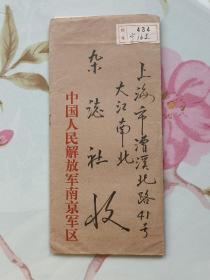 上海市漕溪北路41号
大江南北
杂誌社 收
中国人民解放军南京军区